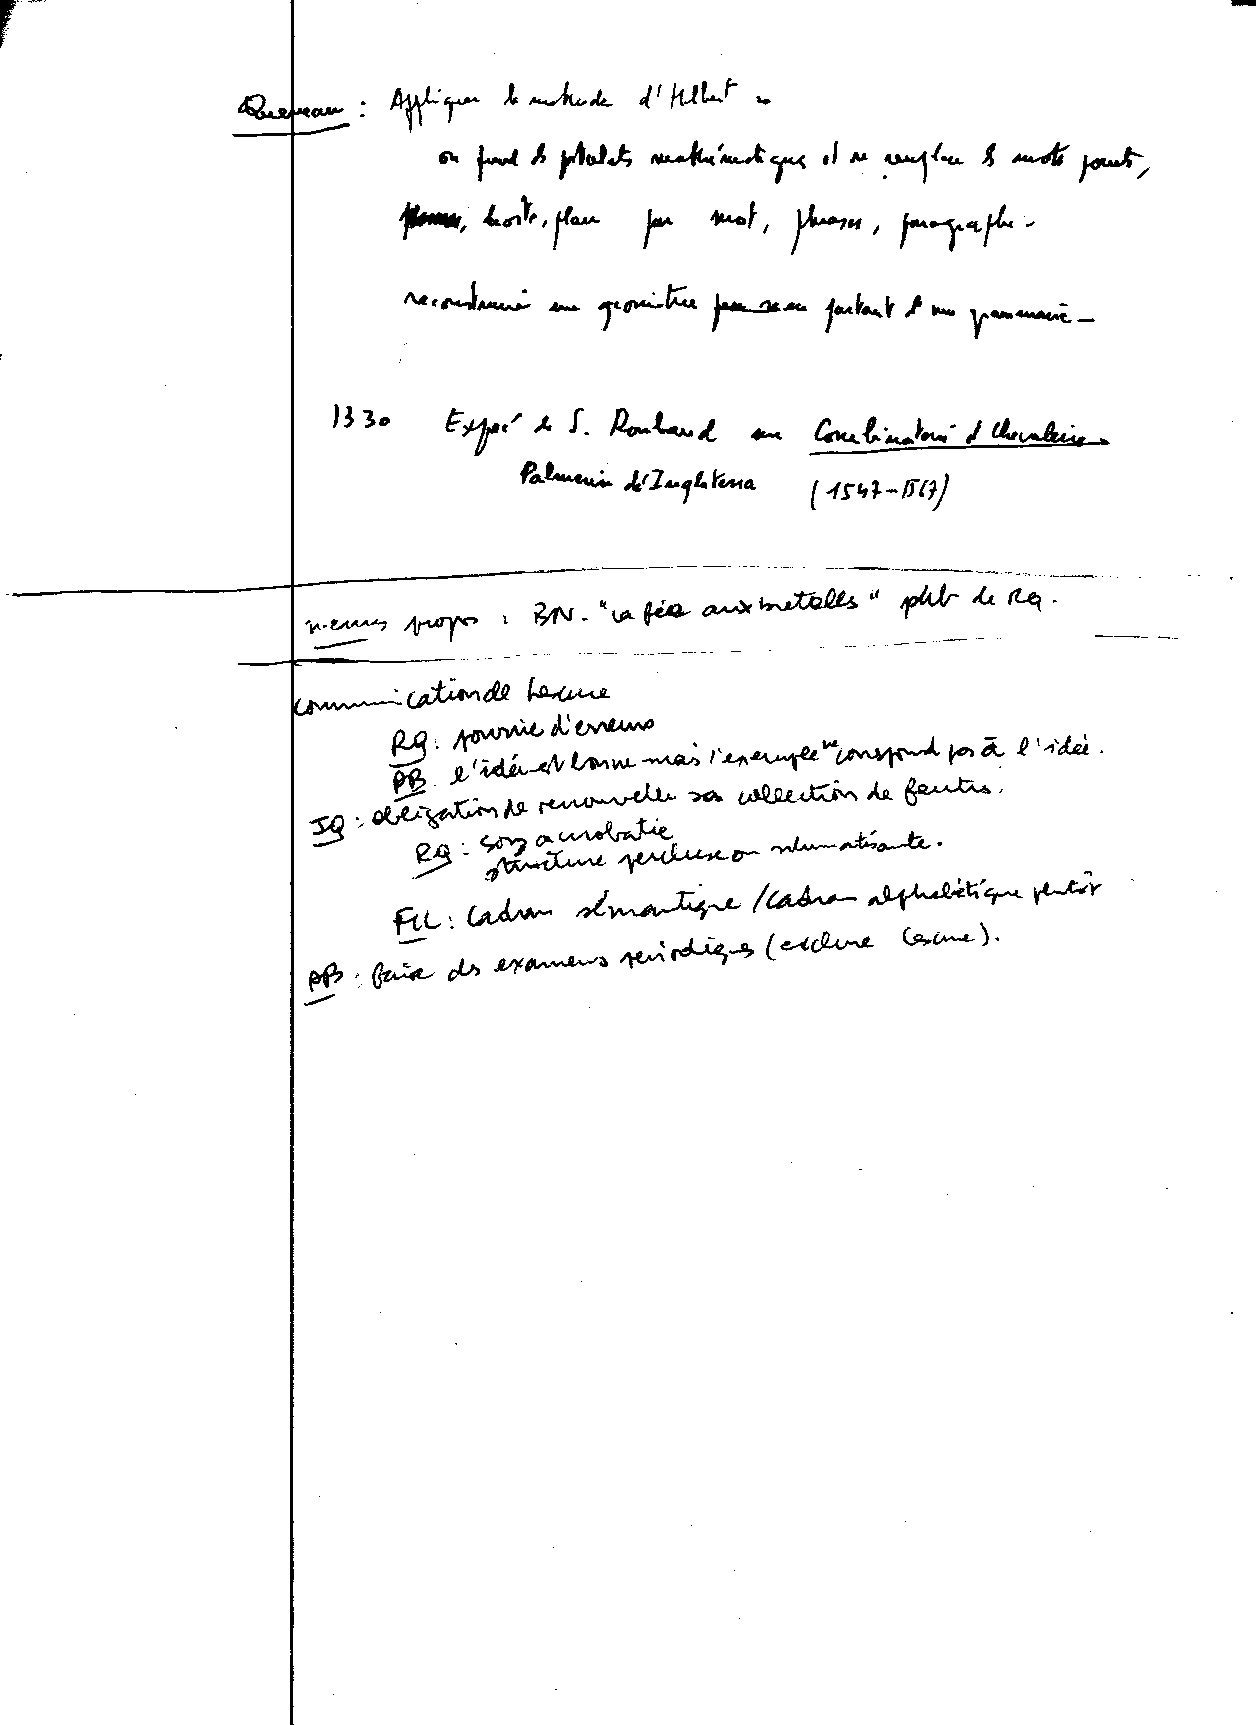 Queneau : Appliquer la méthode d'Hilbert
on prend les postulats mathématiques et on remplace les mots points,
droite, plan par mot, phrases, paragraphe -
reconstruire une géométrie en partant d' une grammaire -
1330 Exposé de J. Roubaud sur Combinatoire et Chevalerie
Palmerin d'Inglaterra (1547-1567)
menus propos : BN. "la fée aux metalls" de RQ.
communication de Lescure
RQ : fourmie d'erreurs
PB l'idée est bonne mais l'exemple ne correspond pas à l'idée.
JQ : obligation de renouveller sa collection de feutres.
RQ : son acrobatie
structure percluse ou rhumatisante.
FLL : Cadran sémantique / Cadran alphabétique plutôt
PB : faire des examens périodiques (exclure Lescure).